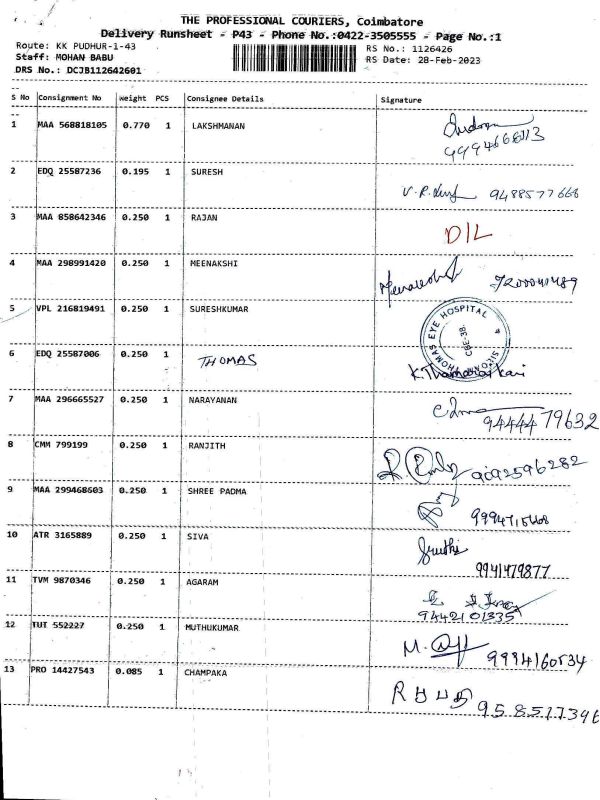 THE PROFESSIONAL COURIERS, Coimbatore
Delivery Runsheet - P43 - Phone No.:0422-3505555 - Page No.:1
Route: KK PUDHUR-1-43 RS No.: 1126426
Staff: MOHAN BABU RS Date: 28-Feb-2023
DRS No.: DCJB112642601
S No Consignment No Weight PCS Consignee Details Signature
1 MAA 568818105 0.770 1 LAKSHMANAN
2 EDQ 25587236 0.195 1 SURESH 9488577668
3 MAA 858642346 0.250 1 RAJAN D/L
4 MAA 298991420 0.250 1 MEENAKSHI
5 VPL 216819491 0.250 1 SURESHKUMAR
THOMAS EYE HOSPITAL
CBE-38
6 EDQ 25587006 0.250 1 THOMAS
7 MAA 296665527 0.250 1 NARAYANAN
9444479632
8 CMM 799199 0.250 1 RANJITH 9092596282
9 MAA 299468603 0.250 1 SHREE PADMA
10 ATR 3165889 0.250 1 SIVA
9941479877
11 TVM 9870346 0.250 1 AGARAM
9442101335
12 TUT 552227 0.250 1 MUTHUKUMAR
9994160534
13 PRO 14427543 0.085 1 CHAMPAKA
R ரூபதி